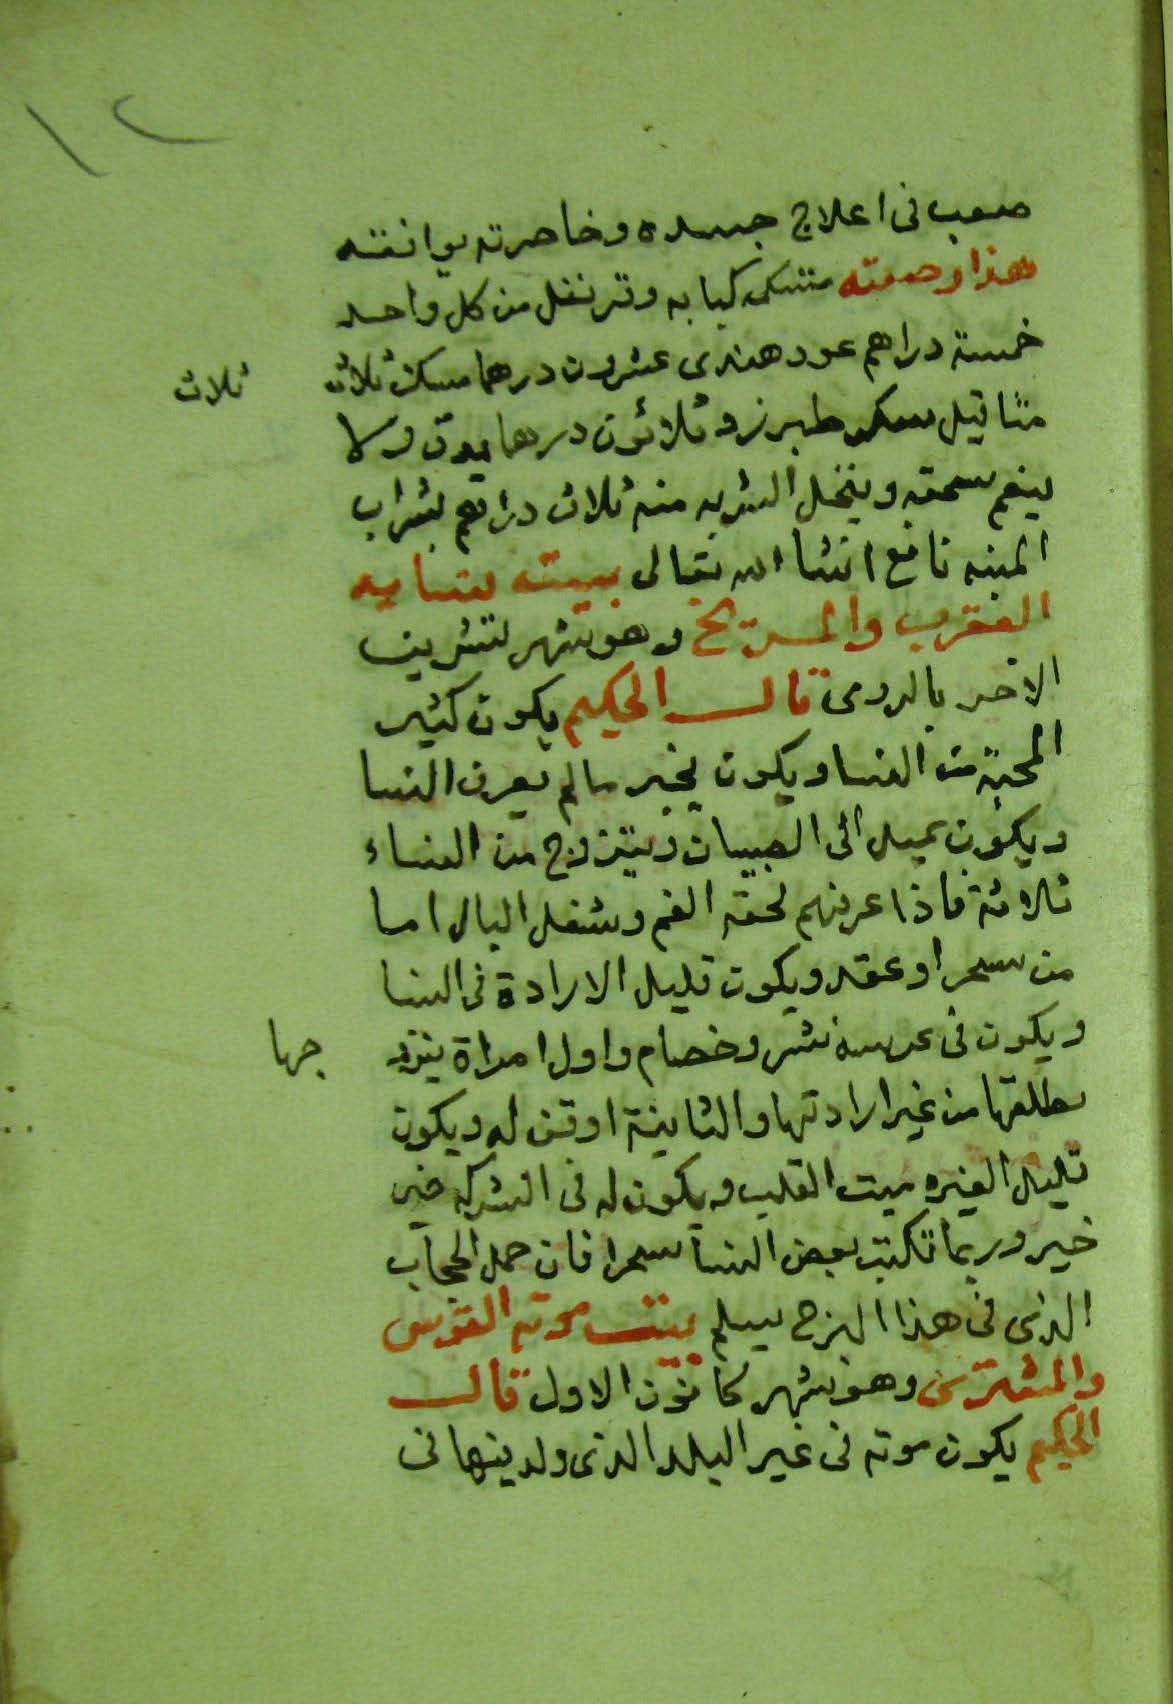 ١٢
صعب فى اعلاج جسده وخاصرته يوافقه
هذا وصفته كبابه وقرنفل من كل واحد
خمسة دراهم عود هندى عشرون درهما مسك ثلاث ثلاث
مثاقيل سكر طبرزو ثلاثون درهما يدق ولا
ينعم سحقه وينخل الشربه منه ثلاث دراهم بشراب
نافع انشا الله تعالى بيت نسايه
العقرب والمريخ وهو شهر تشرين
الاخر بالرومى قال الحكيم يكون كثير
المحبة من النسا ويكون بخير مالم يعرف النسا
ويكون يميل الى الصبيان ويتزوج من النساء
ثلاثة فاذا عرفهم لحقه الغم وشغل البال اما
من سحر او عقد ويكون قليل الارادة فى النسا
ويكون فى عرسه شر وخصام واول امراة يتزو جها
يطلقها من غير ارادتها والثانية اوفق له ويكون
قليل الغيره ميت القلب ويكون له فى الشركه خير
خير وربما تكتب بعض النسا سحرا فان حمل الحجاب
الذى فى هذا البرج يسلم بيت موته القوس
والمشترى وهو شهر كانون الاول قال
الحكيم يكون موته فى غير البلد الذى ولد فى